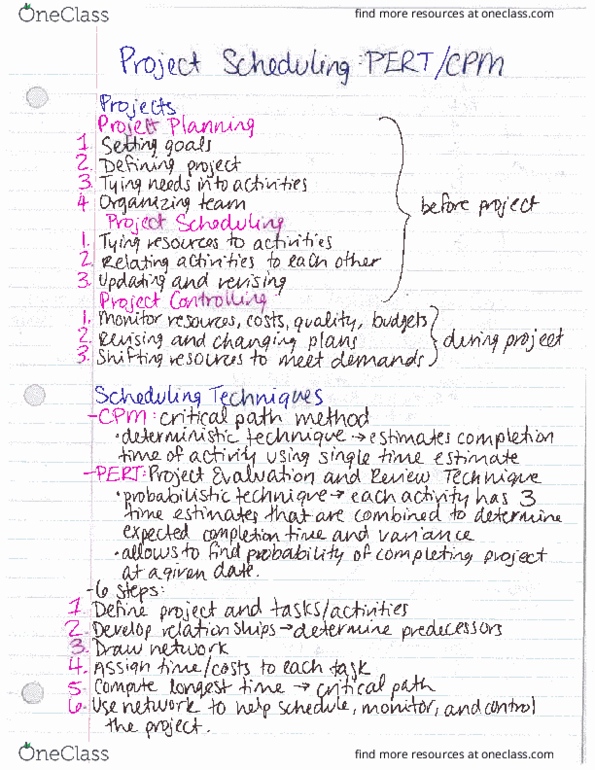 OneClass
find more resources at oneclass.com
Project Scheduling: PERT/CPM
Projects
Project Planning
1. Setting goals
2. Defining project
3. Tying needs into activities
4 Organizing team
before project
Project Scheduling
1. Tying resources to activities
2. Relating activities to each other
3. Updating and revising
Project Controlling
1. Monitor resources, costs, quality, budgets
2. Revising and changing plans
3. Shifting resources to meet demands
during project
Scheduling Techniques
-CPM: critical path method
·deterministic technique → estimates completion
time of activity using single time estimate
-PERT: Project Evaluation and Review Technique
·probabilistic technique → each activity has 3
time estimates that are combined to determine
expected completion time and variance
·allows to find probability of completing project
at a given date.
-6 steps:
1. Define project and tasks/activities
2. Develop relationships → determine predecessors
3. Draw network
4. Assign time/costs to each task
5. Compute longest time → critical path
6. Use network to help schedule, monitor, and control
the project.
OneClass
find more resources at oneclass.com